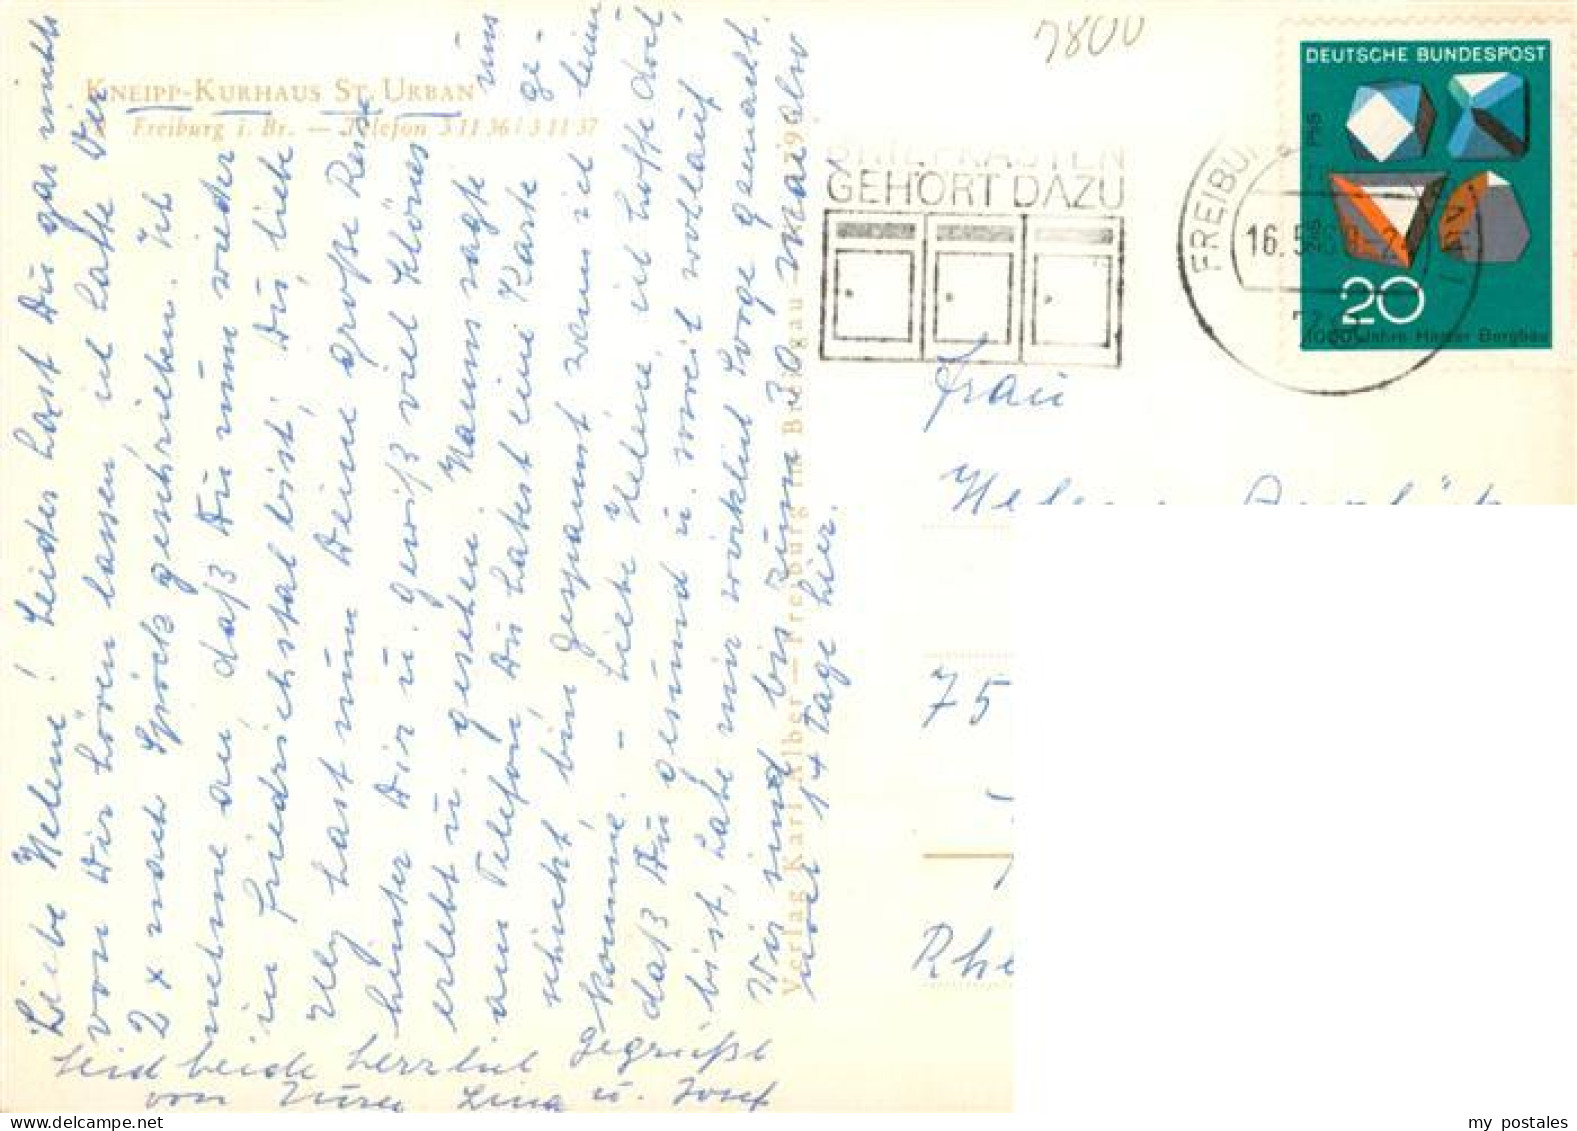 KNEIPP-KURHAUS ST. URBAN
Freiburg i. Br. — Telefon 3 11 36 / 3 11 37
Liebe Helene! Leider hast Du gar nichts
von Dir hören lassen, ich hatte Dir
2 x nach Spöck geschrieben. Ich
nehme an, daß Du nun wieder
in Friedrichstal bist, Du, liebe
Elly hast nun Deine große Reise
hinter Dir u. gewiß viel Schönes
erlebt u. gesehen. Hanns sagte uns
am Telefon, Du habest eine Karte ge-
schickt, bin gespannt wenn ich heim
komme. - Liebe Helene, ich hoffe doch,
daß Du gesund u. soweit wohlauf
bist, habe mir wirklich Sorge gemacht.
Wir sind bis zum 30. Mai also
noch 14 Tage hier.
Seid beide herzlich gegrüßt
von Eurer Lina u. Josef
Verlag Karl Alber — Freiburg im Breisgau
7800
BRIEFKASTEN
GEHÖRT DAZU
FREIBURG
16.5.
DEUTSCHE BUNDESPOST
20
1000 Jahre Harzer Bergbau
Frau
75
Rhe
my postales